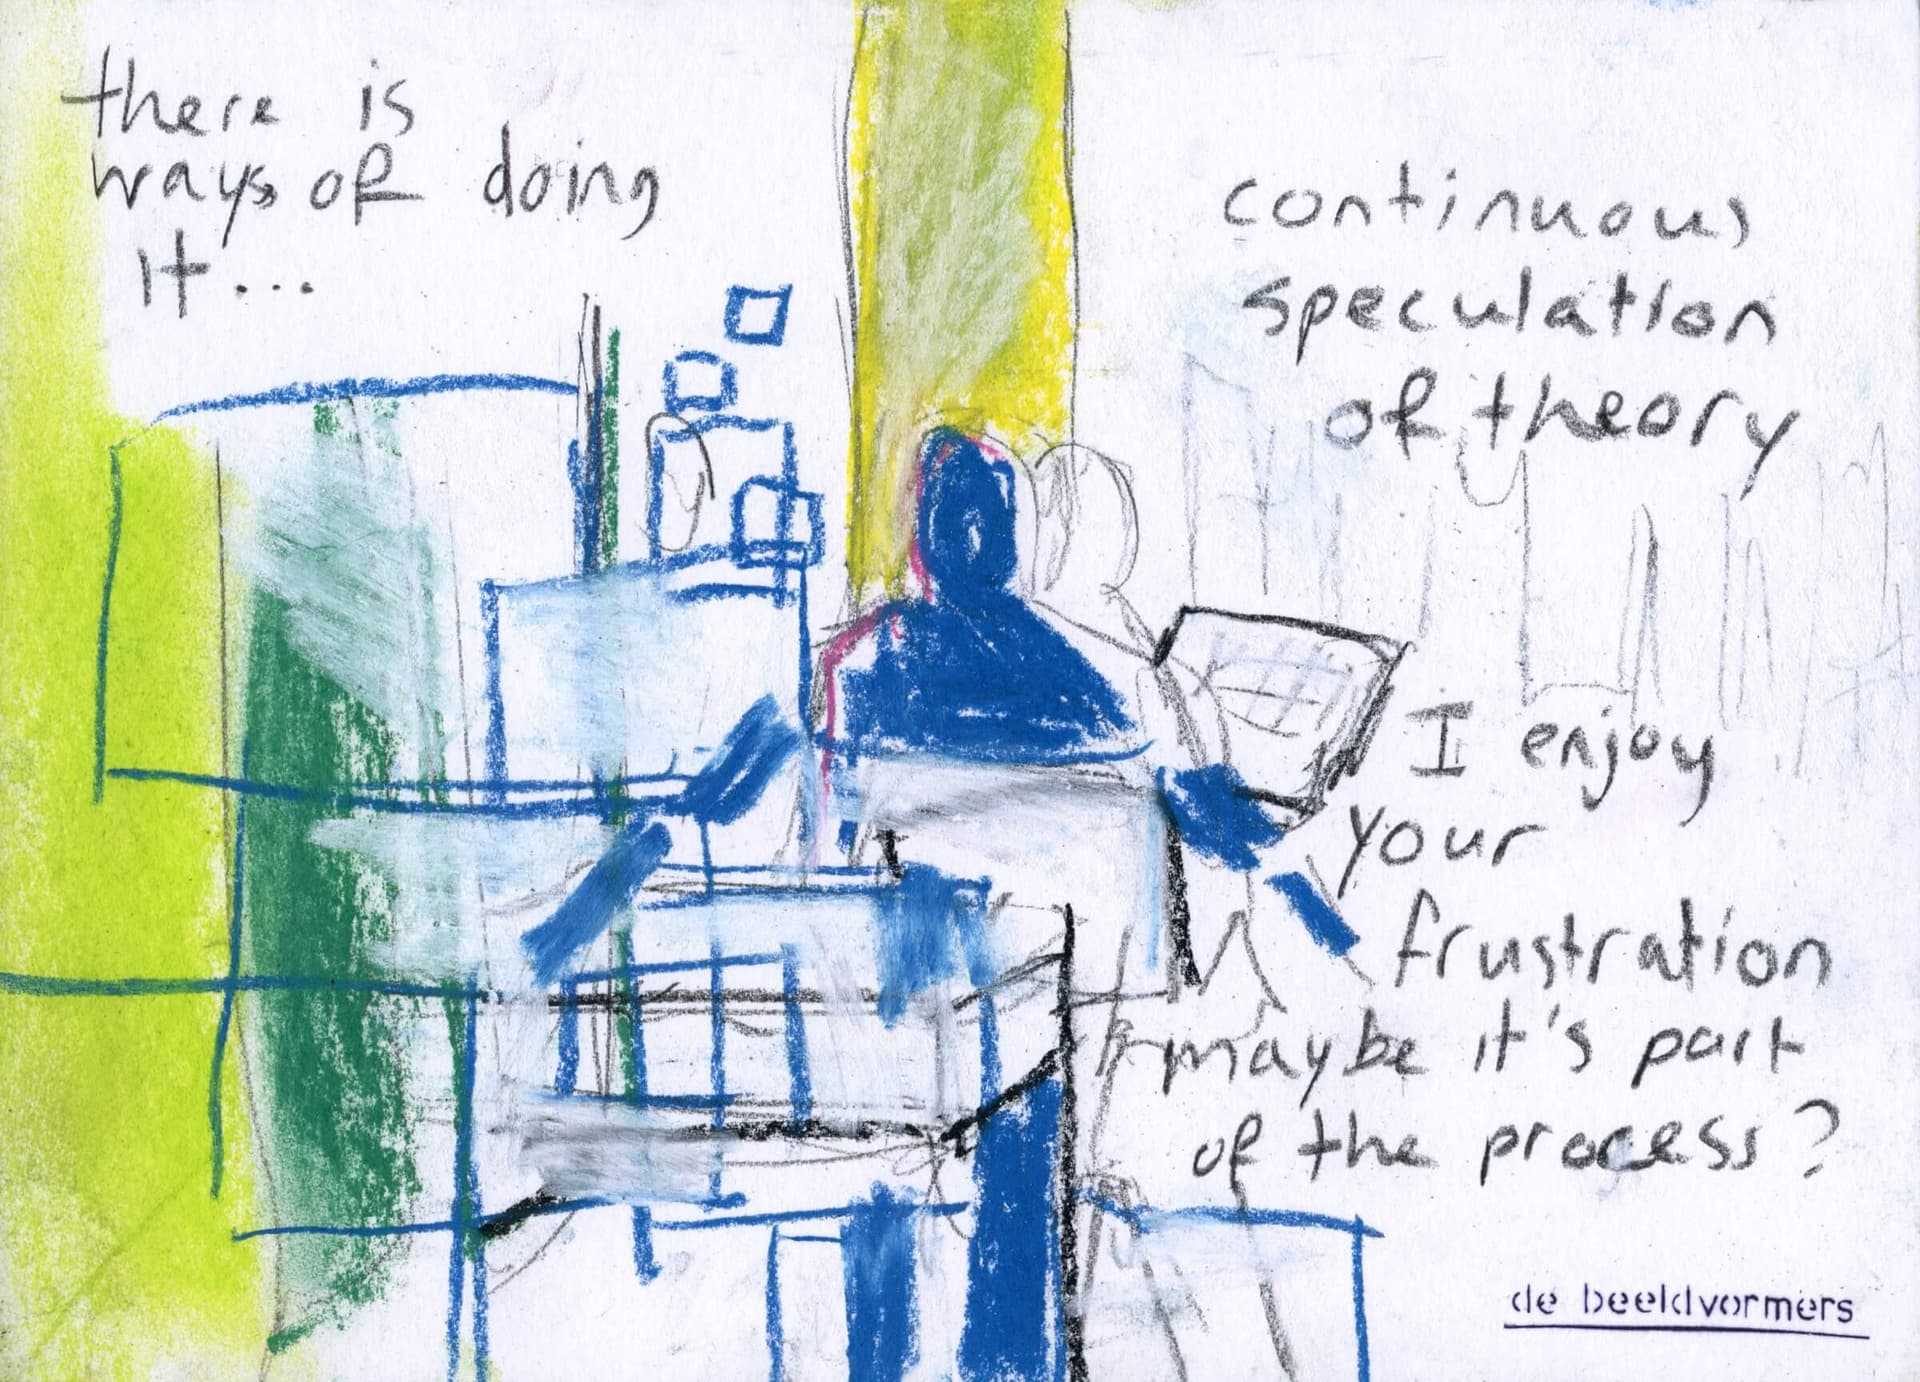 there is
ways of doing
it...
continuous
speculation
of theory
I enjoy
your
frustration
maybe it's part
of the process?
de beeldvormers